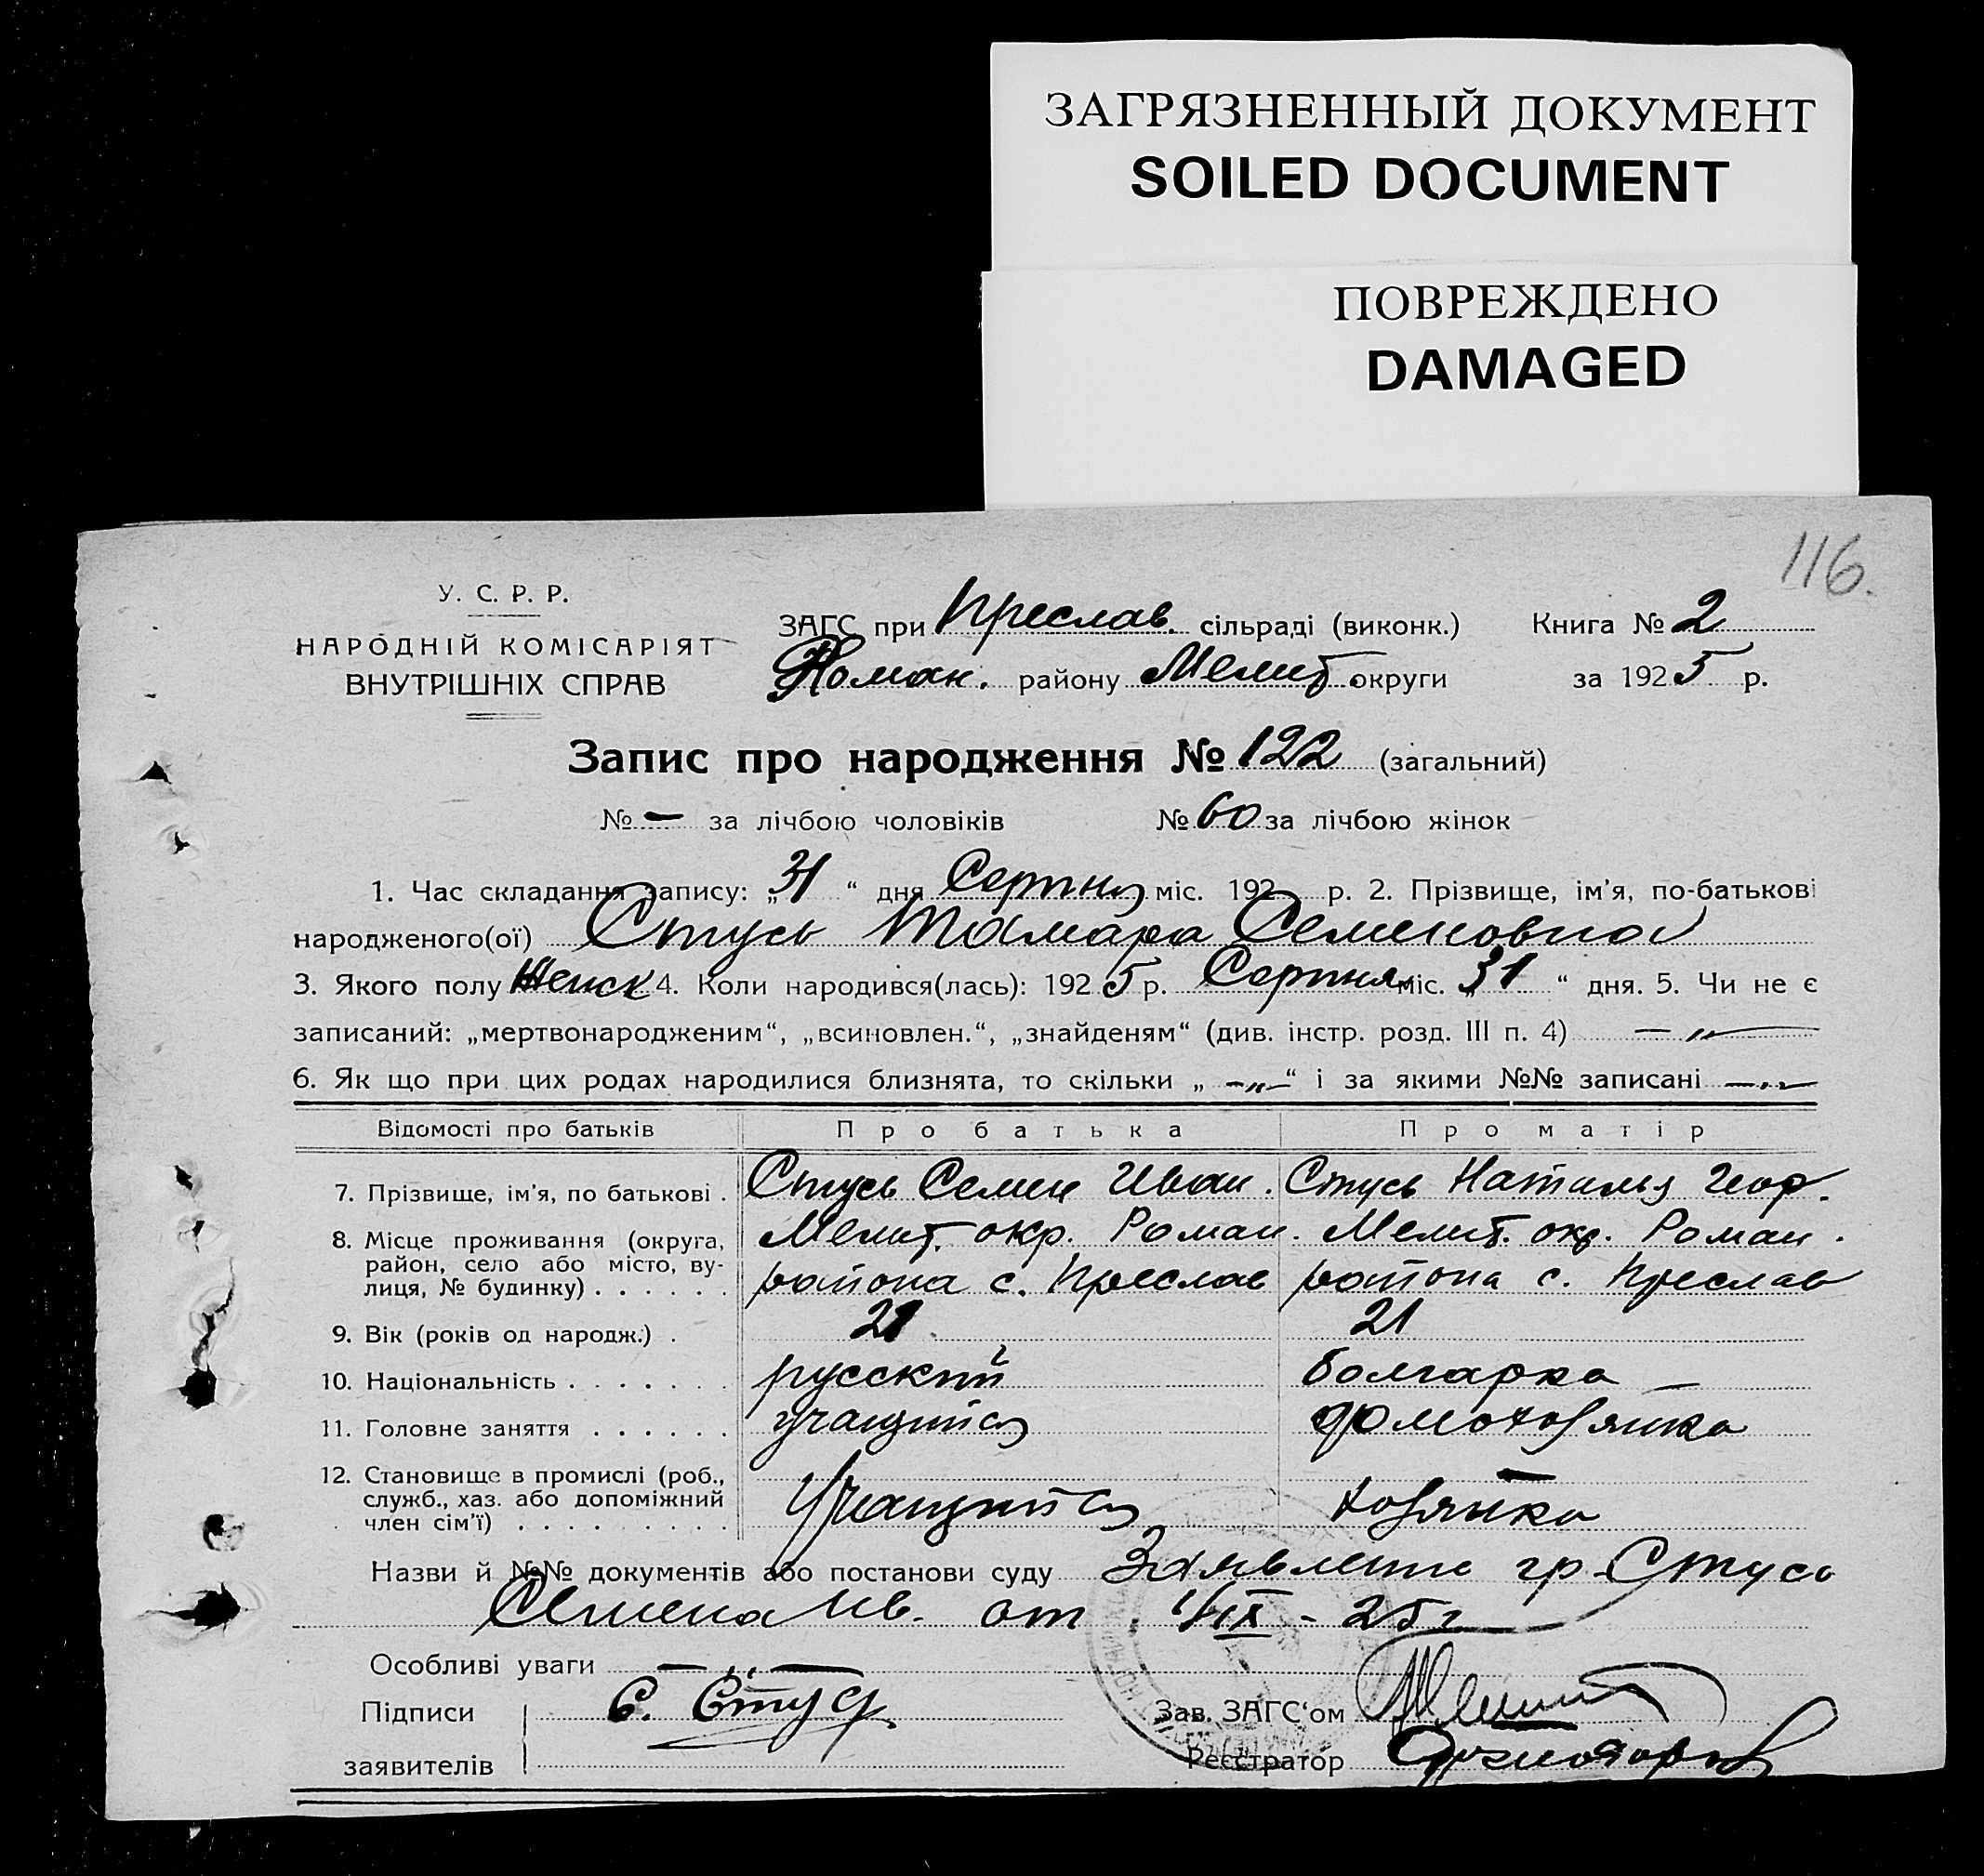 ЗАГРЯЗНЕННЫЙ ДОКУМЕНТ
SOILED DOCUMENT
ПОВРЕЖДЕНО
DAMAGED
116.
У. С. Р. Р.
НАРОДНІЙ КОМІСАРІЯТ
ВНУТРІШНІХ СПРАВ
ЗАГС при Преслав. сільраді (виконк.) Книга № 2
Роман. району Мелит. округи за 1925 р.
Запис про народження № 122 (загальний)
№ — за лічбою чоловіків № 60 за лічбою жінок
1. Час складання запису: „31“ дня Серпня міс. 192 р. 2. Прізвище, ім’я, по-батькові
народженого(ої) Стусь Тамара Семеновна
3. Якого полу Женск 4. Коли народився(лась): 1925 р. Серпня міс. „31“ дня. 5. Чи не є
записаний: „мертвонародженим“, „всиновлен.“, „знайденям“ (див. інстр. розд. III п. 4) —„—
6. Як що при цих родах народилися близнята, то скільки „—„—“ і за якими №№ записані —„—
Відомості про батьків Про батька Про матір
7. Прізвище, ім’я, по батькові . Стусь Семен Иван. Стусь Наталья Геор.
8. Місце проживання (округа, Мелит. окр. Роман. Мелит. окр. Роман.
район, село або місто, ву-
лиця, № будинку) . . . . . . района с. Преслав района с. Преслав
9. Вік (років од народж.) . 21 21
10. Національність . . . . . . . русский болгарка —
11. Головне заняття . . . . . . учащийся домохозяйка
12. Становище в промислі (роб., —
служб., хаз. або допоміжний Учащийся хозяйка
член сім’ї) . . . . . . . . .
Назви й №№ документів або постанови суду Заявление гр. Стуса
Семена Ив. от 1/IX - 25 г
Особливі уваги —„—
Підписи С. Стус Зав. ЗАГС‘ом
заявителів Реєстратор